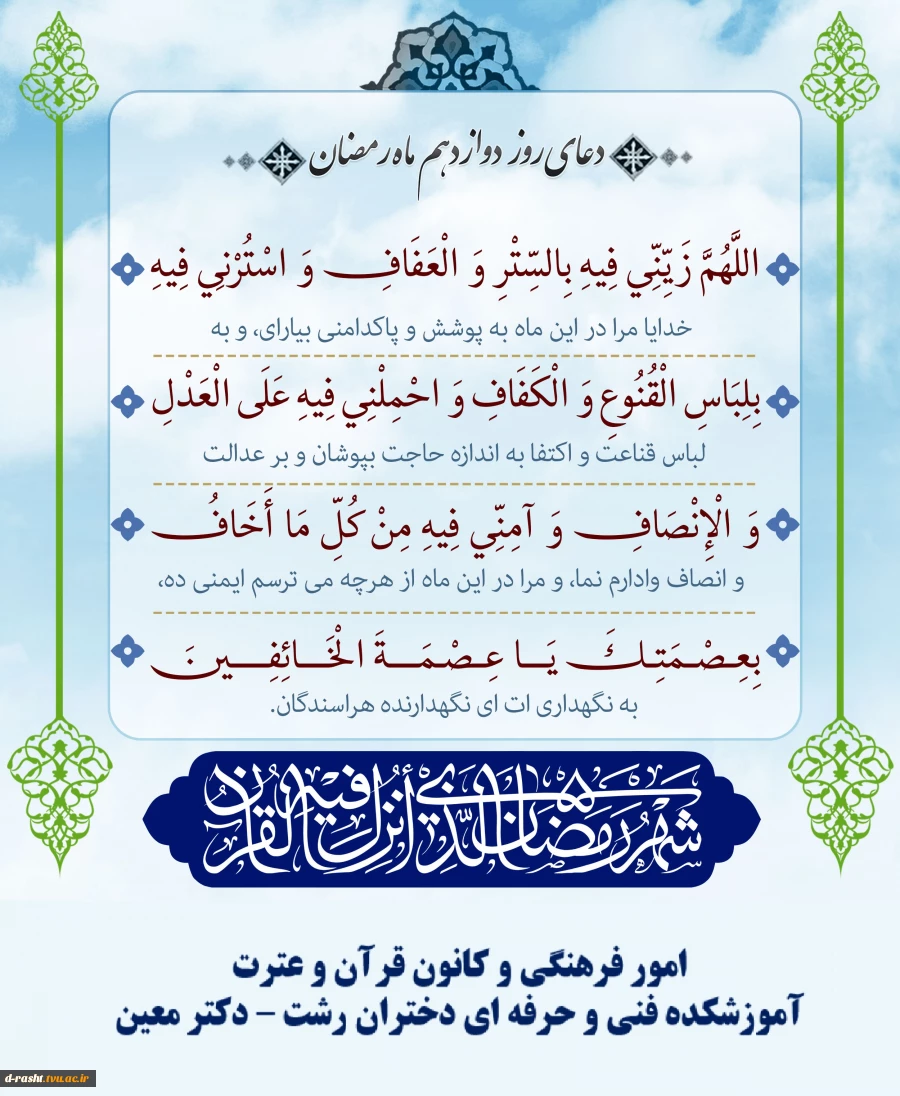 دعای روز دوازدهم ماه رمضان
اللَّهُمَّ زَيِّنِّي فِيهِ بِالسِّتْرِ وَ الْعَفَافِ وَ اسْتُرْنِي فِيهِ
خدایا مرا در این ماه به پوشش و پاکدامنی بیارای، و به
بِلِبَاسِ الْقُنُوعِ وَ الْكَفَافِ وَ احْمِلْنِي فِيهِ عَلَى الْعَدْلِ
لباس قناعت و اکتفا به اندازه حاجت بپوشان و بر عدالت
وَ الْإِنْصَافِ وَ آمِنِّي فِيهِ مِنْ كُلِّ مَا أَخَافُ
و انصاف وادارم نما، و مرا در این ماه از هرچه می ترسم ایمنی ده،
بِعِصْمَتِكَ يَا عِصْمَةَ الْخَائِفِينَ
به نگهداری ات ای نگهدارنده هراسندگان.
شهر رمضان الذي أنزل فيه القرآن
امور فرهنگی و کانون قرآن و عترت
آموزشکده فنی و حرفه ای دختران رشت – دکتر معین
d-rasht.tvu.ac.ir